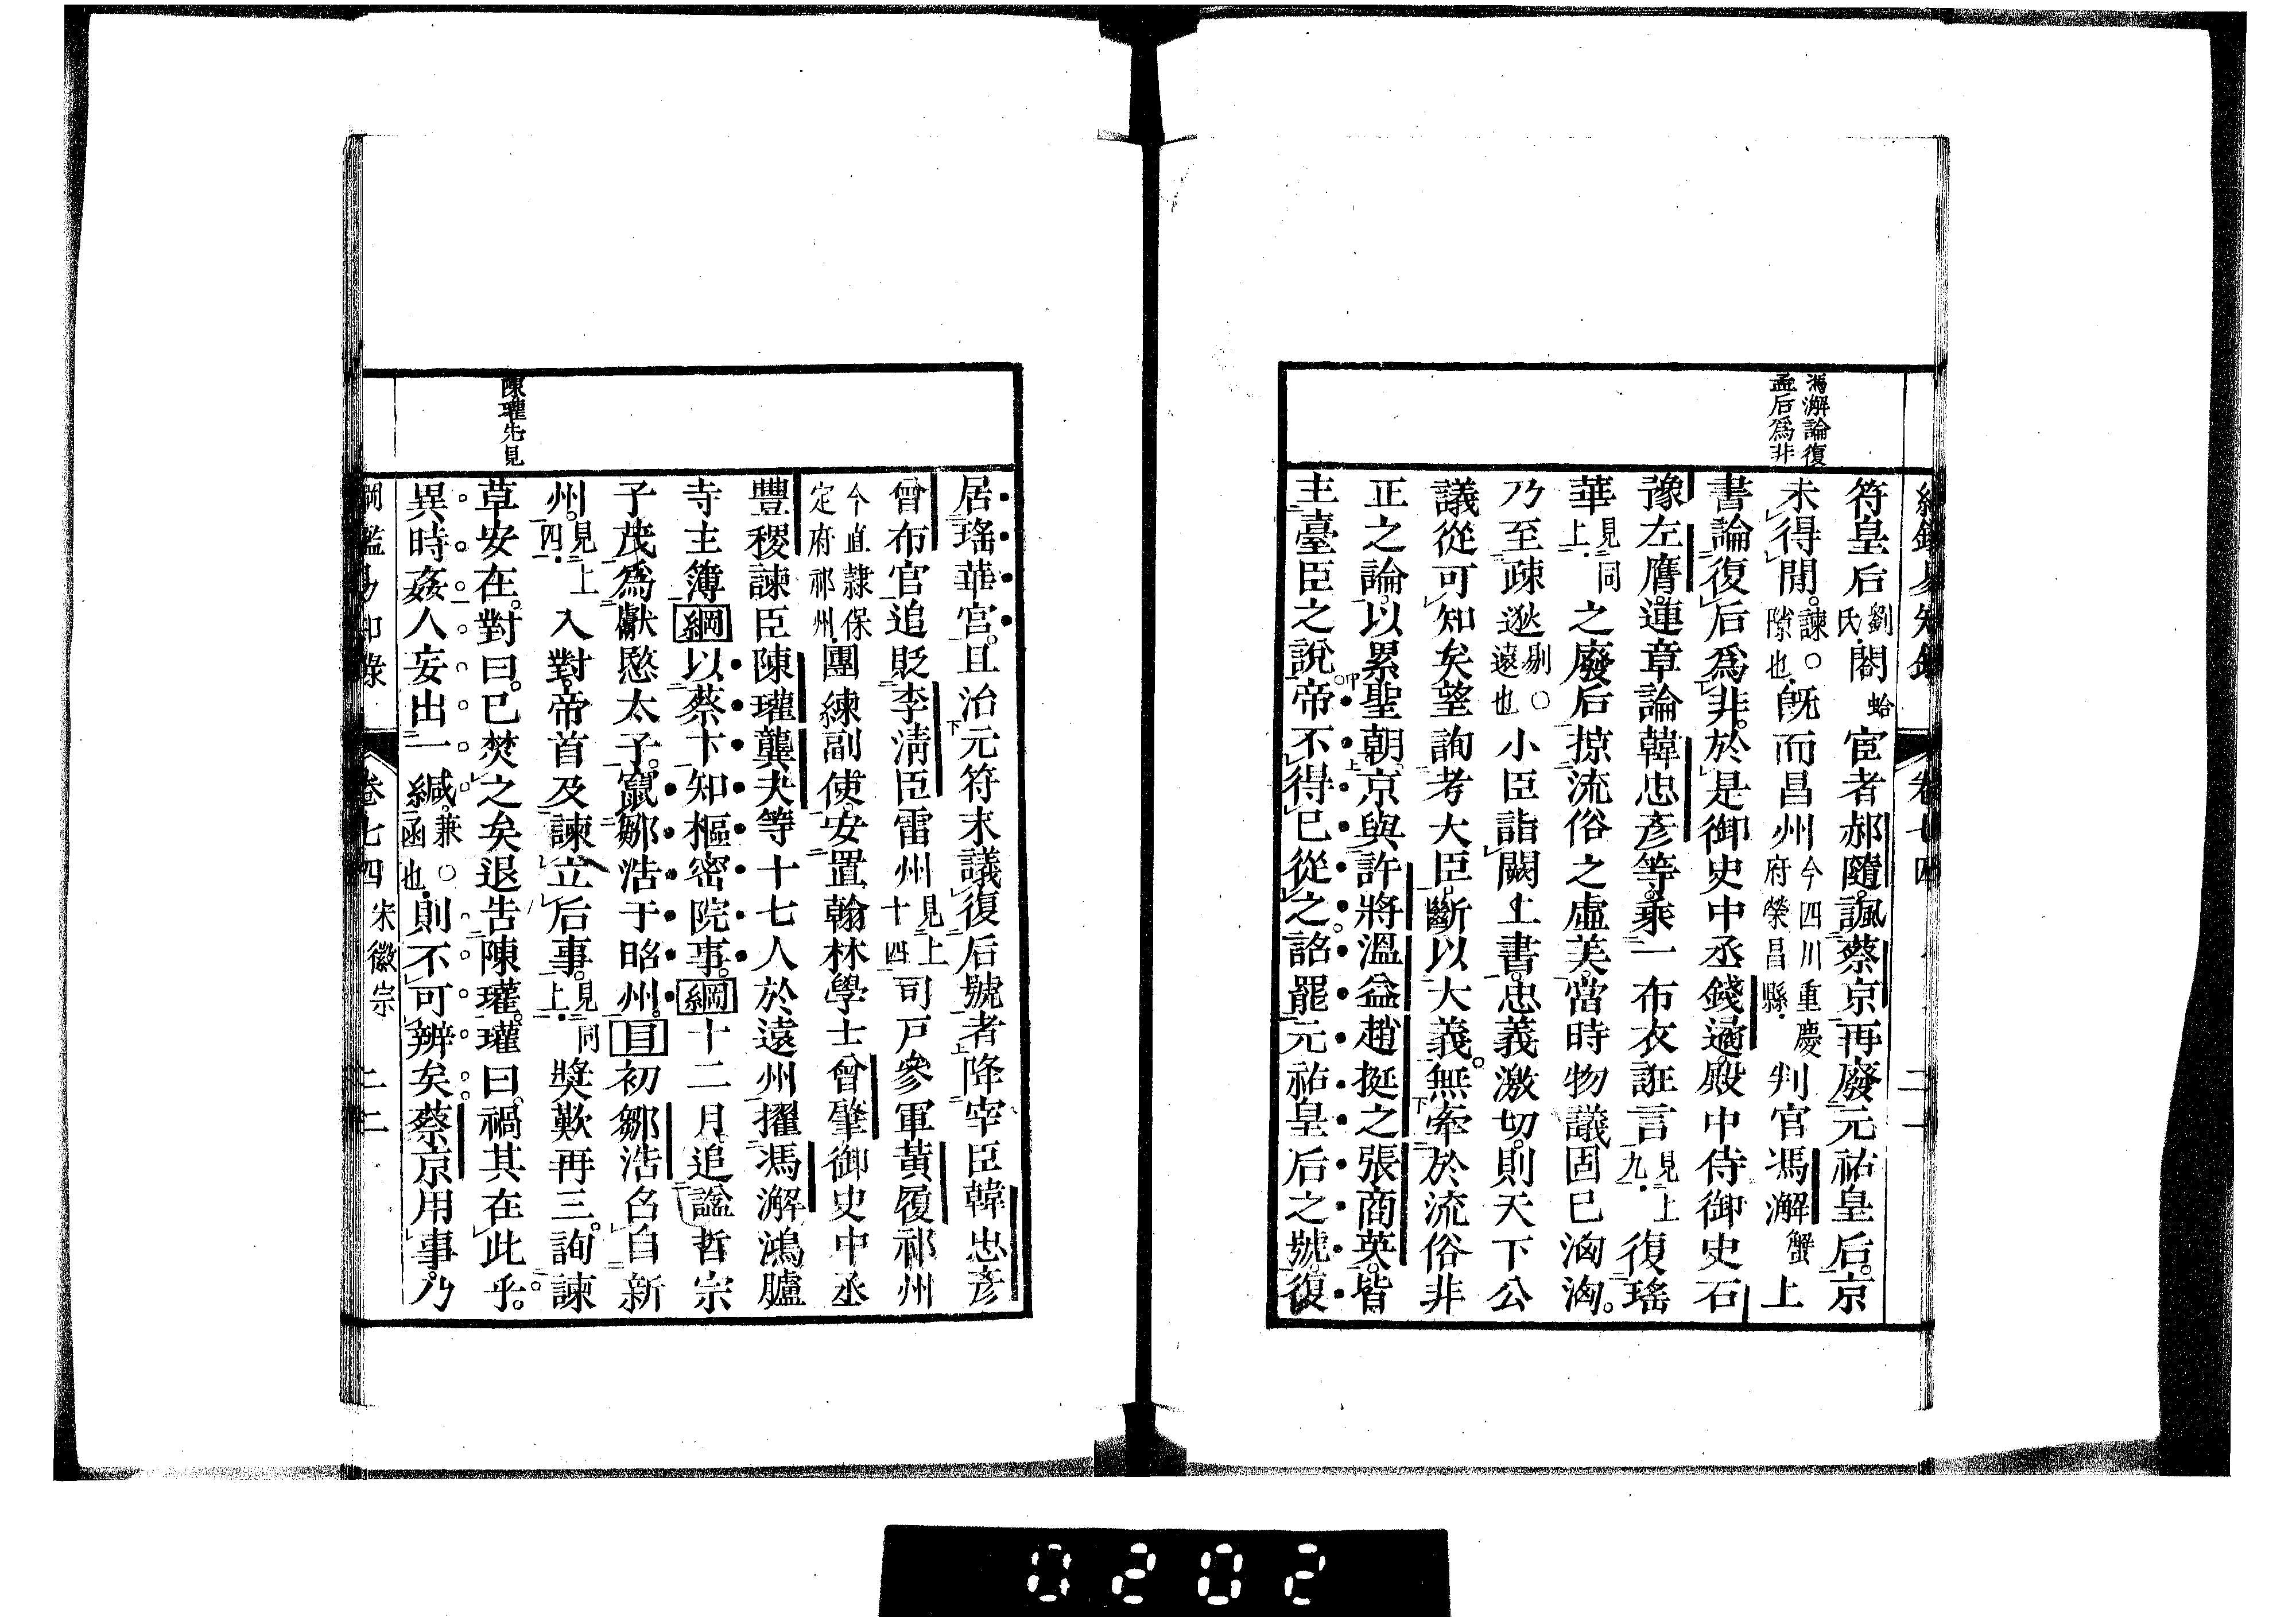 馮澥論復
孟后爲非
符皇后劉氏閤蛤宦者郝隨諷蔡京再廢元祐皇后京
未得閒諫○隙也旣而昌州今四川重慶府榮昌縣判官馮澥蟹上
書論復后爲非於是御史中丞錢遹殿中侍御史石
豫左膺連章論韓忠彥等乘一布衣誑言見上九復瑤
華見同上之廢后掠流俗之虛美當時物議固已洶洶
乃至疎逖剔○遠也小臣詣闕上書忠義激切則天下公
議從可知矣望詢考大臣斷以大義無牽於流俗非
正之論以累聖朝京與許將溫益趙挺之張商英皆
主臺臣之說帝不得已從之詔罷元祐皇后之號復
居瑤華宮且治元符末議復后號者降宰臣韓忠彥
曾布官追貶李淸臣雷州見上十四司戸參軍黃履祁州
今直隸保定府祁州團練副使安置翰林學士曾肇御史中丞
豐稷諫臣陳瓘龔夬等十七人於遠州擢馮澥鴻臚
寺主簿綱以蔡卞知樞密院事綱十二月追謚哲宗
子茂爲獻愍太子竄鄒浩于昭州目初鄒浩召自新
州見上四入對帝首及諫立后事見同上奬歎再三詢諫
草安在對曰已焚之矣退告陳瓘瓘曰禍其在此乎
異時姦人妄出一緘兼○函也則不可辨矣蔡京用事乃
陳瓘先見
綱鑑易知錄 卷七四 宋徽宗 二二